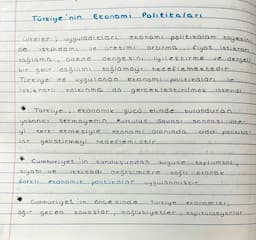 Türkiye'nin Ekonomi Politikaları
Ülkeler, uyguladıkları ekonomi politikaları sayesin
de istihdamı ve üretimi artırma, fiyat istikrarı
sağlama, ödeme dengesini iyileştirme ve dengeli
bir gelir dağılımı sağlamayı hedeflemektedir.
Türkiye'de uygulanan ekonomi politikaları ile
istikrarlı kalkınma da gerçekleştirilmek istendi
* Türkiye, ekonomik gücü elinde bulunduran
yabancı sermayenin Kurtuluş Savaşı sonrası ülke
yi terk etmesiyle ekonomi alanında ciddi politika
lar geliştirmeyi hedeflemiştir
* Cumhuriyet'in kuruluşundan bugüne toplumsal,
siyasi ve iktisadi değişimlere bağlı olarak
farklı ekonomik politikalar uygulanmıştır
* Cumhuriyet'in öncesinde Türkiye ekonomisi,
ağır geçen savaşlar, mağlubiyetler, kapitülasyonlar